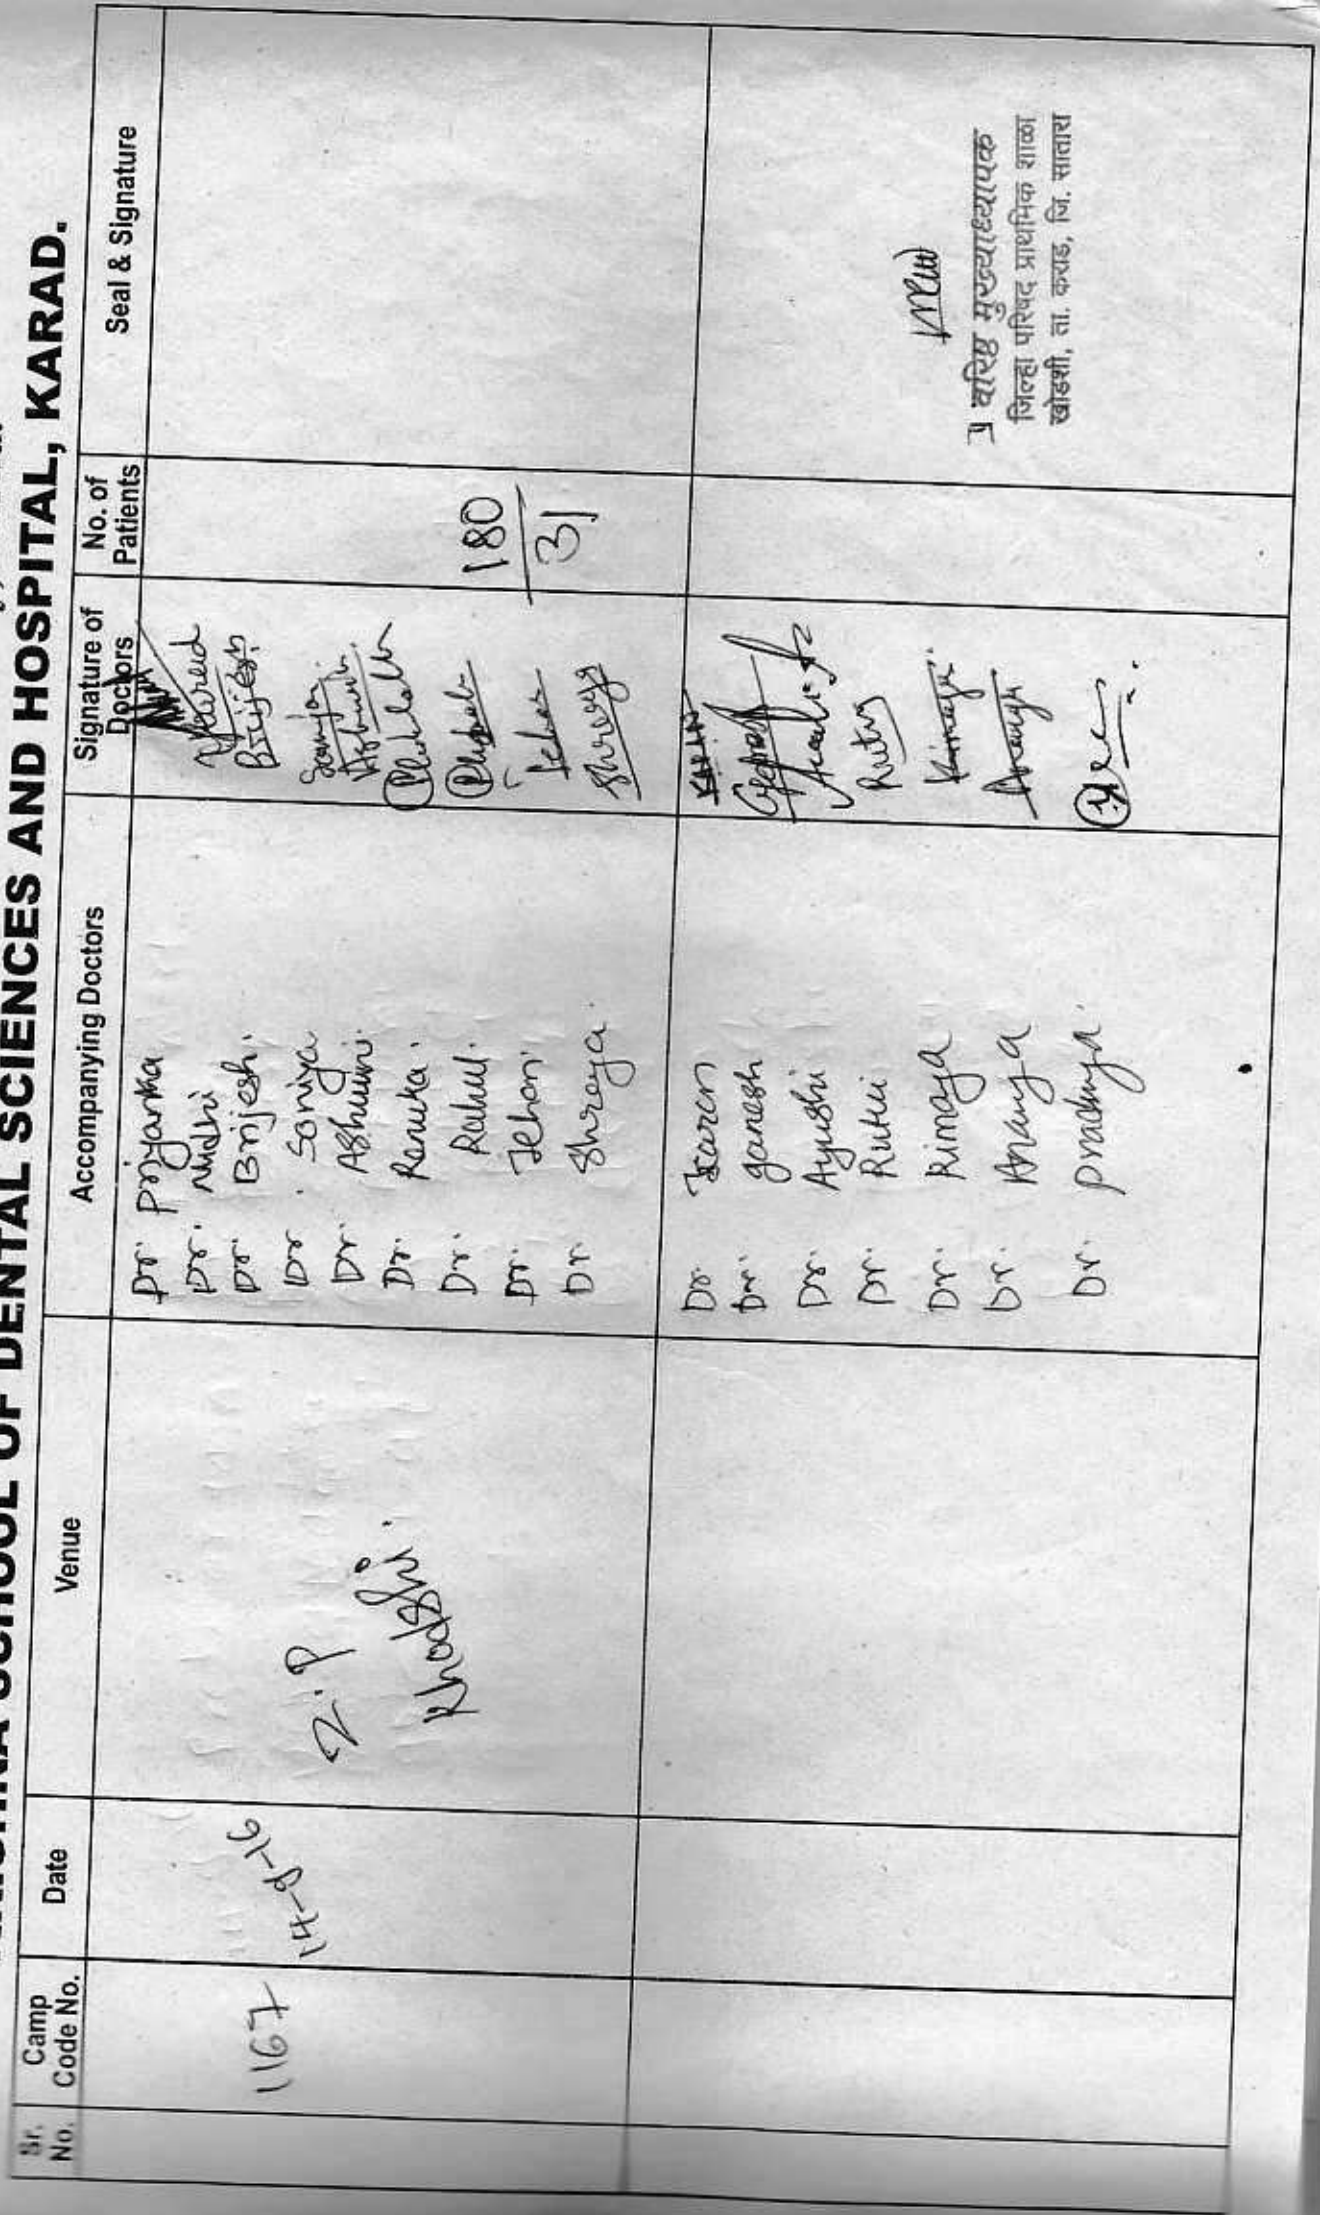 SCHOOL OF DENTAL SCIENCES AND HOSPITAL, KARAD.
Sr. No.
Camp Code No.
Date
Venue
Accompanying Doctors
Signature of Doctors
No. of Patients
Seal & Signature
1167
14-9-16
Z.P
Khodshi.
Dr. Priyanka
Dr. Nidhi
Dr. Brijesh.
Dr. Soniya
Dr. Ashwini.
Dr. Renuka.
Dr. Rahul.
Dr. Jehan.
Dr. Shreya.
Brijesh
Shreya
180
31
Dr. Karen
Dr. Ganesh
Dr. Ayushi
Dr. Rutui
Dr. Rimaya
Dr. Anaya
Dr. Pradnya.
वरिष्ठ मुख्याध्यापक
जिल्हा परिषद प्राथमिक शाळा
खोडशी, ता. कराड, जि. सातारा